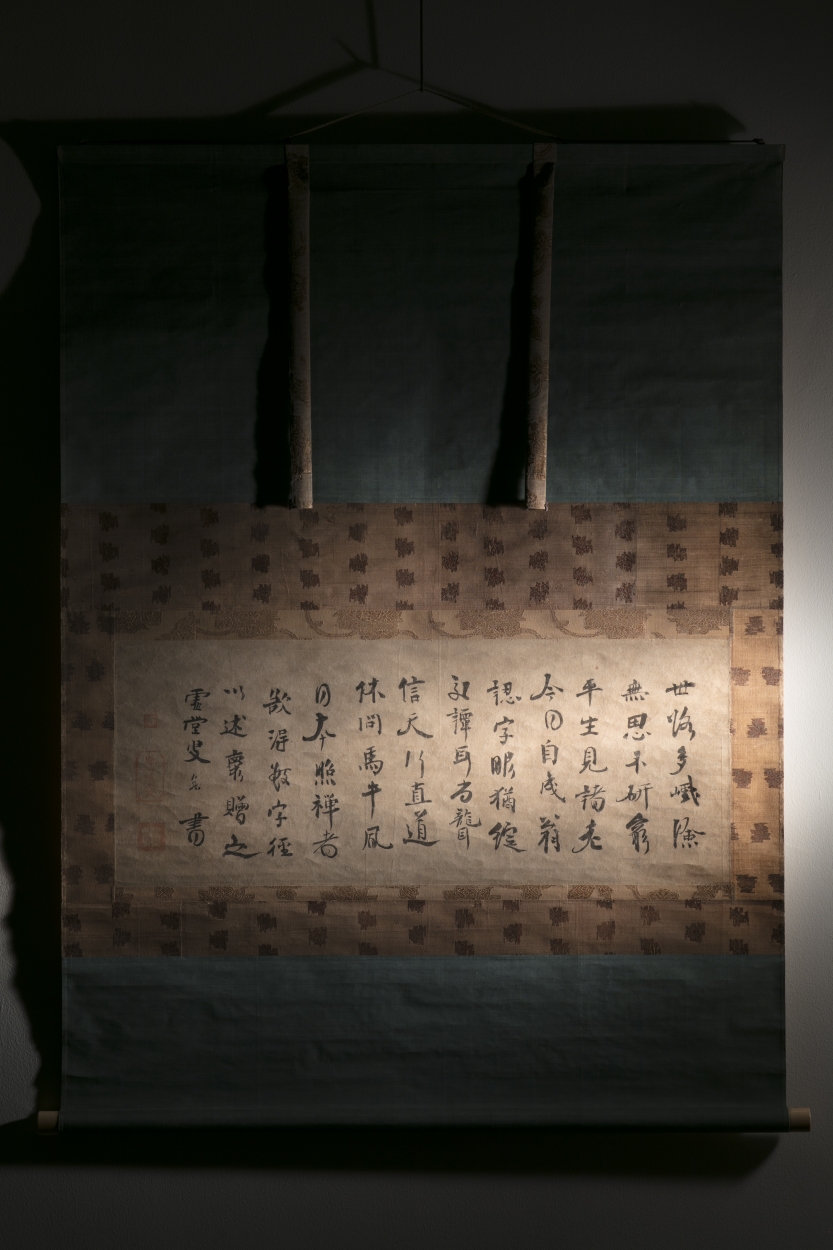 世路多巇險
無思不研窮
平生見諸老
今日自成翁
認字眼猶綻
交譚耳尚聾
信天行直道
休問馬牛風
日本照禪者
欲得數字徑
以述褱贈之
虛堂叟書